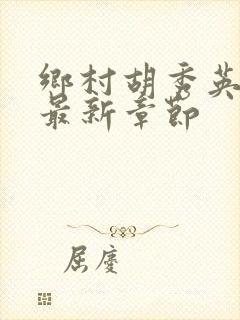 鄉村胡秀英
最新章節
屈慶